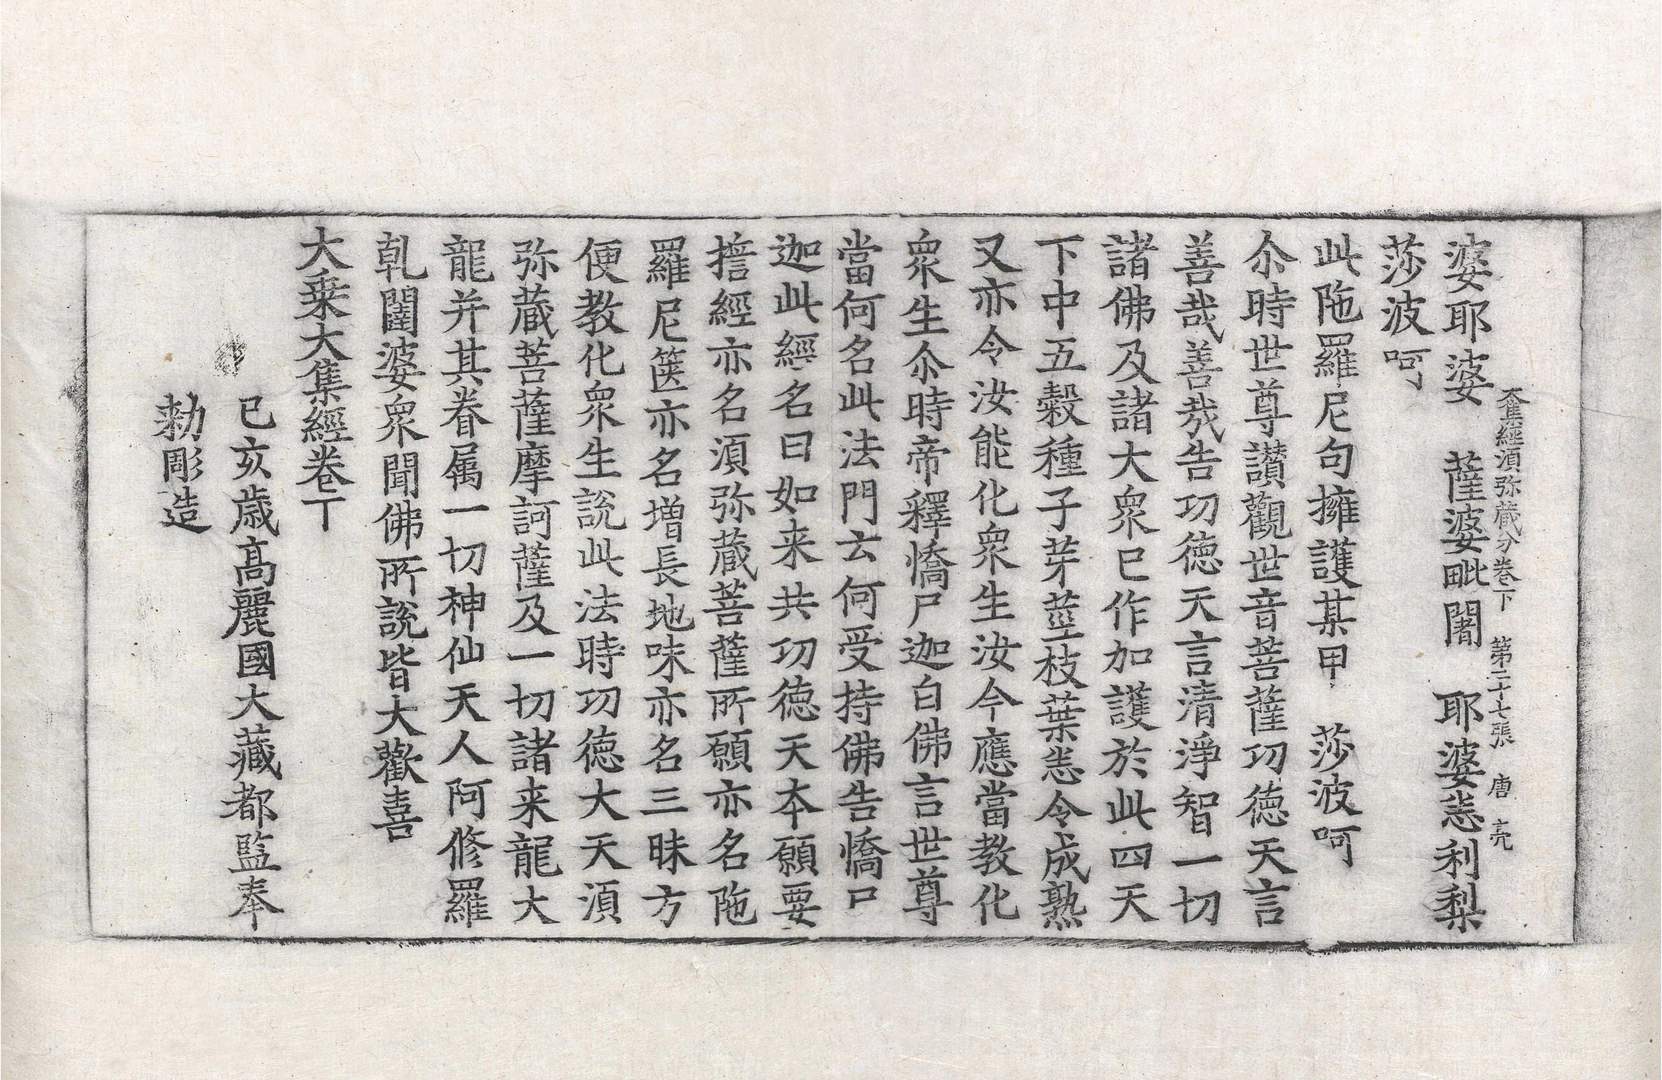 大集經須弥藏分卷下 第二十七張 唐 亮
婆耶婆 薩婆毗闍 耶婆恙利梨
莎波呵
此陁羅尼句擁護某甲 莎波呵
尒時世尊讃觀世音菩薩功德天言
善哉善哉告功德天言清淨智一切
諸佛及諸大衆已作加護於此四天
下中五穀種子芽莖枝葉恙令成熟
又亦令汝能化衆生汝今應當教化
衆生尒時帝釋憍尸迦白佛言世尊
當何名此法門云何受持佛告憍尸
迦此經名曰如来共功德天本願要
擔經亦名須弥藏菩薩所願亦名陁
羅尼篋亦名增長地味亦名三昧方
便教化衆生說此法時功德大天須
弥藏菩薩摩訶薩及一切諸来龍大
龍并其眷属一切神仙天人阿修羅
乹闥婆衆聞佛所說皆大歡喜
大乗大集經卷下
己亥歲髙麗國大藏都監奉
勑彫造